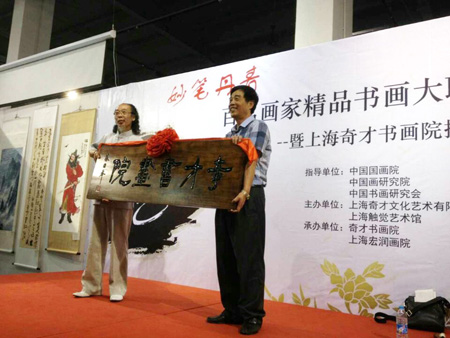 妙笔丹青
百名画家精品书画大联
--暨上海奇才书画院
指导单位：中国国画院
中国画研究院
中国书画研究会
主办单位：上海奇才文化艺术有
上海触觉艺术馆
承办单位：奇才书画院
上海宏润画院
奇才書畫院